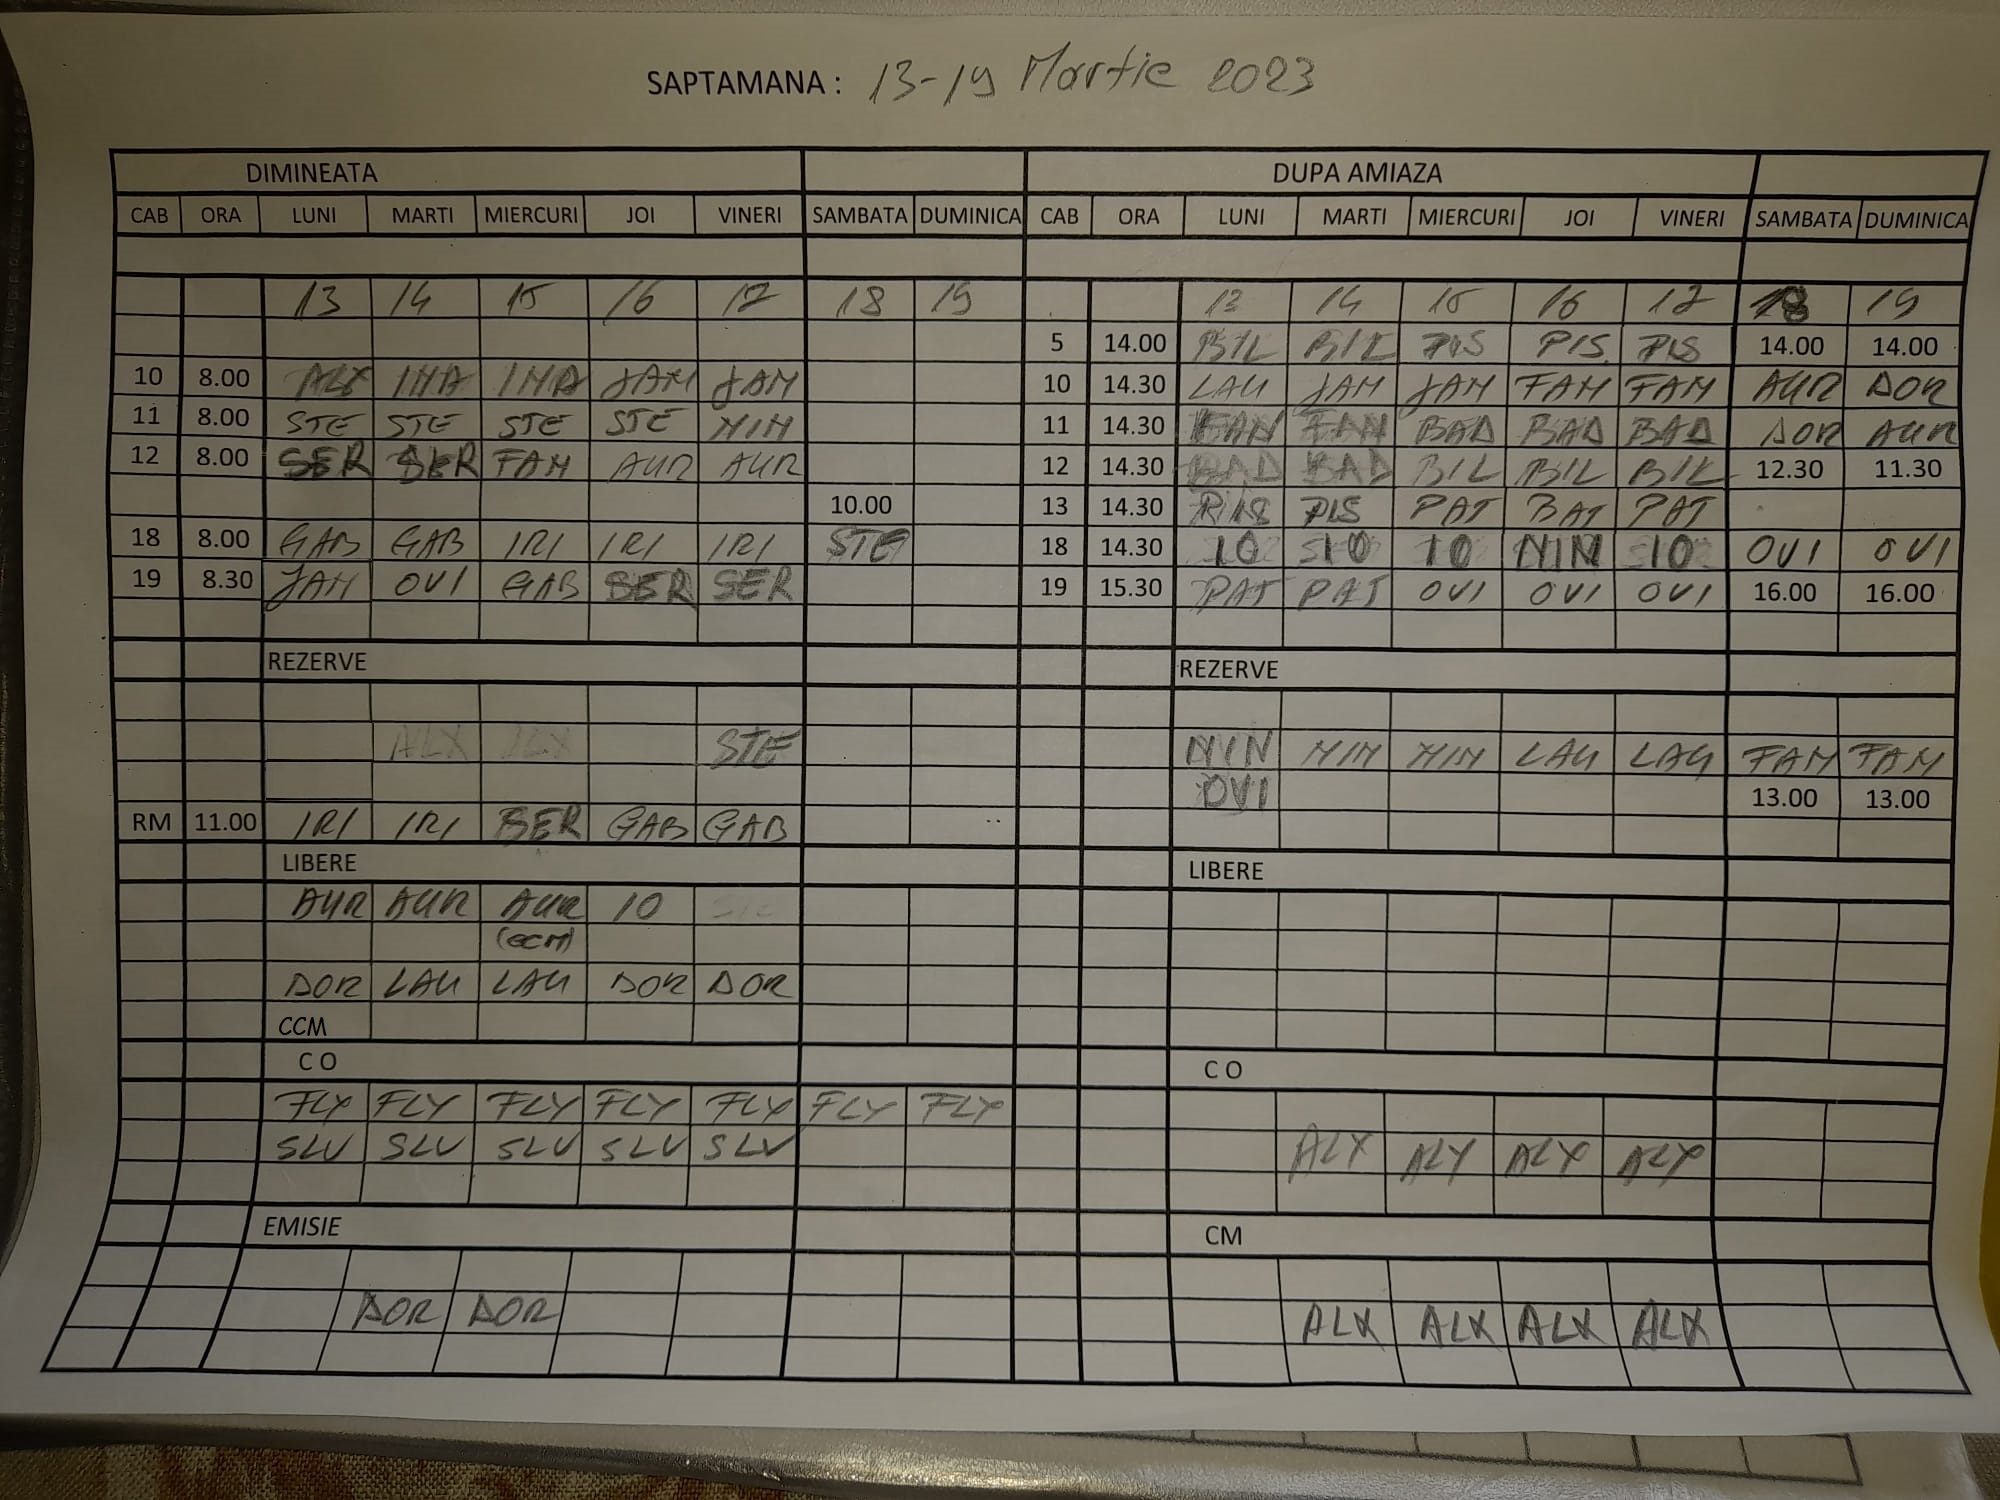 SAPTAMANA : 13-19 Martie 2023
DIMINEATA DUPA AMIAZA
CAB ORA LUNI MARTI MIERCURI JOI VINERI SAMBATA DUMINICA CAB ORA LUNI MARTI MIERCURI JOI VINERI SAMBATA DUMINICA
13 14 15 16 17 18 19 13 14 15 16 17 18 19
5 14.00 BIL BIL PIS PIS PIS 14.00 14.00
10 8.00 ALX INA INA JAM JAM 10 14.30 LAU JAM JAM FAM FAM AUR DOR
11 8.00 STE STE STE STE NIN 11 14.30 FAN FAN BAD BAD BAD DOR AUR
12 8.00 SER SER FAM AUR AUR 12 14.30 BAD BAD BIL BIL BIL 12.30 11.30
10.00 13 14.30 PIS PIS PAT PAT PAT
18 8.00 GAB GAB IRI IRI IRI STE 18 14.30 10 10 10 NIN 10 OVI OVI
19 8.30 JAM OVI GAB SER SER 19 15.30 PAT PAT OVI OVI OVI 16.00 16.00
REZERVE REZERVE
ALX ALX STE NIN NIN NIN LAU LAU FAM FAM
OVI 13.00 13.00
RM 11.00 IRI IRI SER GAB GAB
LIBERE LIBERE
AUR AUR AUR 10
DOR LAU LAU DOR DOR
CCM
C O C O
FLY FLY FLY FLY FLY FLY FLY
SLV SLV SLV SLV SLV ALX ALX ALX ALX
EMISIE CM
DOR DOR ALX ALX ALX ALX